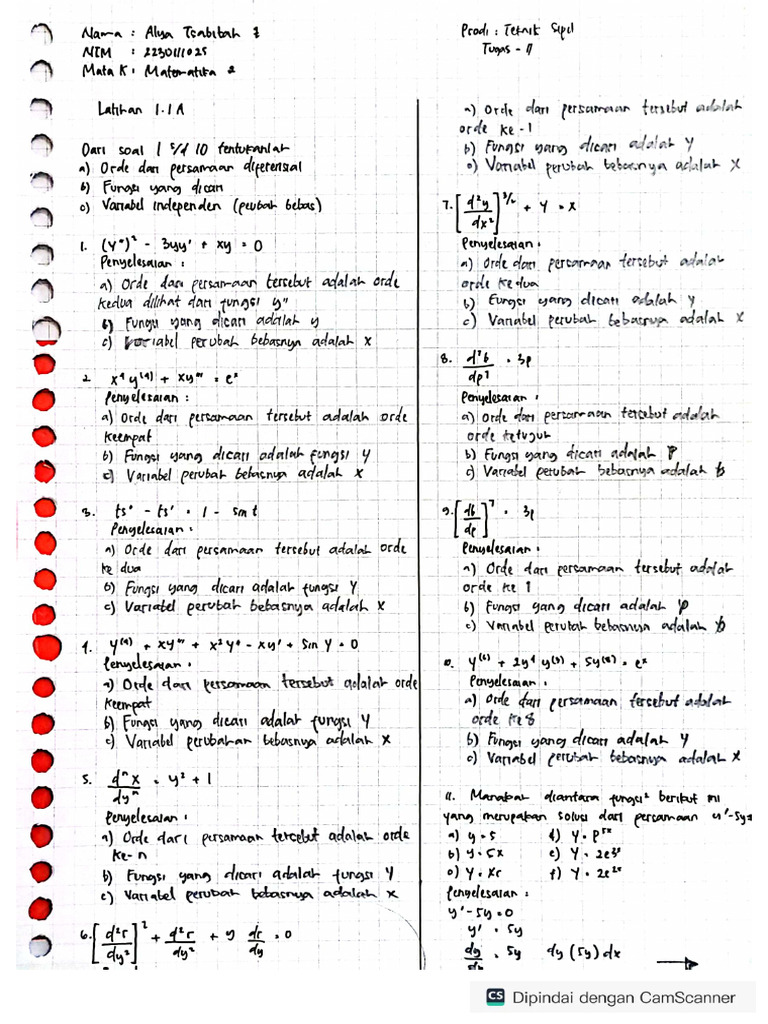 Nama : Alya Tsabitah Z
NIM : 2230111025
Mata K : Matematika 2
Prodi : Teknik Sipil
Tugas - 11
Latihan 1.1A
Dari soal 1 s/d 10 tentukanlah
a) Orde dan persamaan diferensial
b) Fungsi yang dicari
c) Variabel independen (peubah bebas)
1. (y'')² - 3yy' + xy = 0
Penyelesaian :
a) Orde dari persamaan tersebut adalah orde
kedua dilihat dari fungsi y''
b) Fungsi yang dicari adalah y
c) Variabel perubah bebasnya adalah x
2. x⁴y⁽⁴⁾ + xy''' = eˣ
Penyelesaian :
a) Orde dari persamaan tersebut adalah orde
keempat
b) Fungsi yang dicari adalah fungsi y
c) Variabel perubah bebasnya adalah x
3. ts'' - ts' = 1 - sin t
Penyelesaian :
a) Orde dari persamaan tersebut adalah orde
ke dua
b) Fungsi yang dicari adalah fungsi y
c) Variabel perubah bebasnya adalah x
4. y⁽⁴⁾ + xy''' + x²y'' - xy' + sin y = 0
Penyelesaian :
a) Orde dari persamaan tersebut adalah orde
keempat
b) Fungsi yang dicari adalah fungsi y
c) Variabel perubahan bebasnya adalah x
5. dⁿx/dyⁿ = y² + 1
Penyelesaian :
a) Orde dari persamaan tersebut adalah orde
ke-n
b) Fungsi yang dicari adalah fungsi y
c) Variabel perubah bebasnya adalah x
6. [d²r/dy²]² + d²r/dy² + y dr/dy = 0
a) Orde dari persamaan tersebut adalah
orde ke-1
b) Fungsi yang dicari adalah y
c) Variabel perubah bebasnya adalah x
7. [d²y/dx²]^3/2 + y = x
Penyelesaian :
a) Orde dari persamaan tersebut adalah
orde kedua
b) Fungsi yang dicari adalah y
c) Variabel perubah bebasnya adalah x
8. d⁷b/dp⁷ = 3p
Penyelesaian :
a) Orde dari persamaan tersebut adalah
orde ketujuh
b) Fungsi yang dicari adalah p
c) Variabel perubah bebasnya adalah b
9. [db/dp]⁷ = 3p
Penyelesaian :
a) Orde dari persamaan tersebut adalah
orde ke 1
b) Fungsi yang dicari adalah p
c) Variabel perubah bebasnya adalah b
10. y⁽⁶⁾ + 2y⁴y⁽³⁾ + 5y⁽⁸⁾ = eˣ
Penyelesaian :
a) Orde dari persamaan tersebut adalah
orde ke 8
b) Fungsi yang dicari adalah y
c) Variabel perubah bebasnya adalah x
11. Manakah diantara fungsi² berikut ini
yang merupakan solusi dari persamaan y'-5y=
a) y = 5 d) y = e⁵ˣ
b) y = 5x e) y = 2e
c) f) y = 2e²ˣ
Penyelesaian :
y' - 5y = 0
y' = 5y
dy/dx = 5y dy (5y) dx
CS Dipindai dengan CamScanner